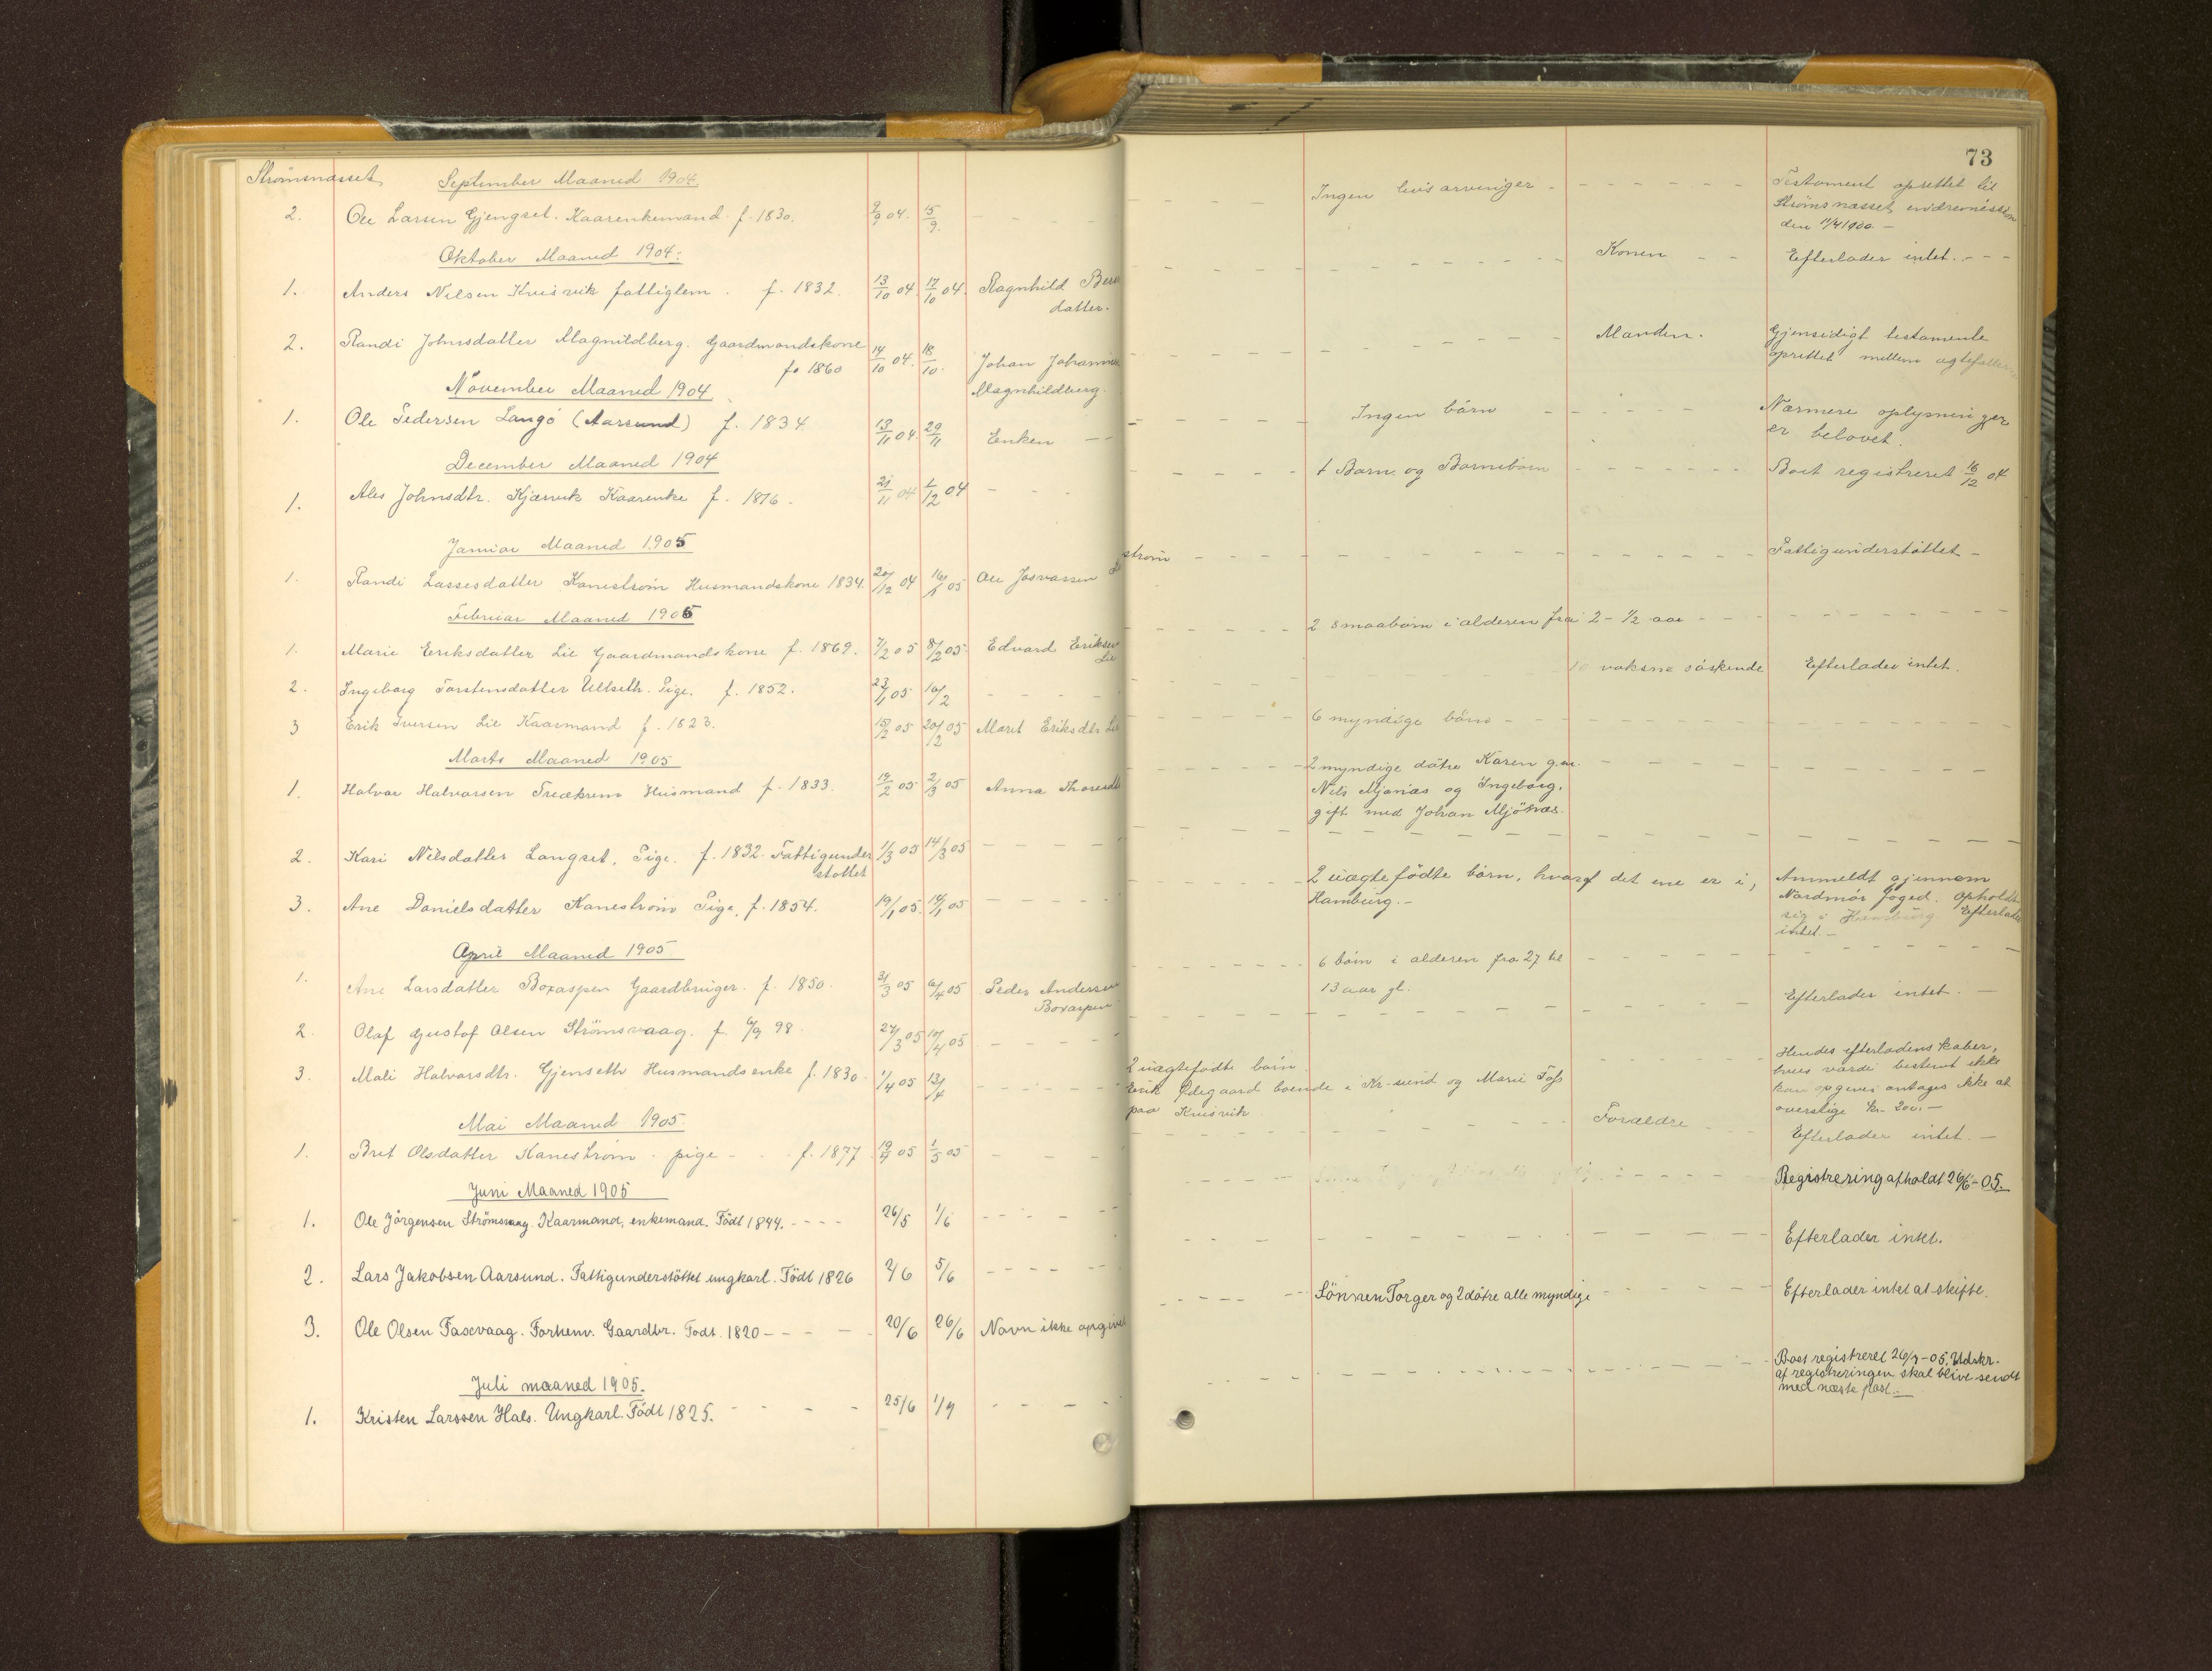 73
Strømsnæsset September Maaned 1904.
2. Ole Larsen Gjengset. Kaarenkemand f. 1830. 9/9 04. 15/9. - - - Ingen livsarvinger - - - - Testament oprettet til
Strømsnæsset indremission
den 11/4 1900 -
Oktober Maaned 1904:
1. Anders Nilsen Kvisvik fattiglem. f. 1832. 13/10 04 17/10 04. Ragnhild
datter. - - - Konen - - Efterlader intet. - - -
2. Randi Johnsdatter Magnildberg. Gaardmandskone
f. 1860 14/10 04. 18/10. Johan
Magnhildberg. - - - Manden. Gjensidigt testamente
oprettet mellem
November Maaned 1904
1. Ole Pedersen Langö (Aarsund) f. 1834 13/11 04. 29/11 Enken - - Ingen børn - - - Nærmere oplysninger
er belovet.
December Maaned 1904
1. Ales Johnsdtr. Kjørvik Kaarenke f. 1816. 21/11 04 1/12 04 - - - 1 Barn og Barnebørn - - - Boet registreret 16/12 04
Januar Maaned 1905
1. Randi Lassesdatter Kanestrøm Husmandskone 1834. 20/12 04 16/1 05 Ole strøm - - - Fattigunderstøttet -
Februar Maaned 1905
1. Marie Eriksdatter Lie Gaardmandskone f. 1869. 7/2 05 8/2 05. Edvard Eriksen
Lie - - - 2 smaabørn i alderen fra 2 - 1/2 aar - - -
2. Ingeborg Torstensdatter Ulset. Pige. f. 1852. 23/1 05 10/2 - - - 10 voksne søskende Efterlader intet.
3 Erik Iversen Lie Kaarmand f. 1823. 15/2 05 20/2 05 Marit Eriksdtr Lie - - - 6 myndige børn - - -
Marts Maaned 1905
1. Halvar Halvarsen Husmand f. 1833. 19/2 05 2/3 05 Anna - - - 2 myndige døtre Karen g.m.
Nils og Ingeborg.
gift med Johan
2. Kari Nilsdatter Langset, Pige. f. 1832. Fattigunder
støttet 1/3 05 14/3 05 - - -
3. Ane Danielsdatter Kanestrøm Pige, f. 1854. 19/1 05. - - - 2 uægte fødte børn, hvoraf det ene er i,
Hamburg. - Anmeldt gjennem
Nordmør foged. Opholdt
sig i Hamburg Efterlader
intet. -
April Maaned 1905
1. Ane Larsdatter Boxaspen Gaardbruger. f. 1850. 31/3 05 6/4 05 Peder Andersen
Boxaspen - - - 6 børn i alderen fra 27 til
13 aar gl. - - -
2. Olaf Gustof Olsen Strømsvaag. f. 6/9 98. 27/3 05 10/4 05 - - - Efterlader intet. -
3. Mali Halvarsdtr. Gjenseth Husmandsenke f. 1830. 1/4 05 13/4 - - - 2 uægtefødte børn.
Erik Ødegaard boende i Kr-sund og Marie
paa Kvisvik - - - Hendes efterladenskaber,
hvis værdi bestemt ikke
kan opgives antages ikke at
overstige kr. 200. -
Mai Maaned 1905.
1. Brit Olsdatter Kanestrøm - pige - - f. 1877. 19/4 05 1/5 05 - - - Forældre - - Efterlader intet. -
Juni Maaned 1905
1. Ole Jörgensen Strömsvaag. Kaarmand, enkemand. Födt 1844. - - - 26/5 1/6 - - - Registrering afholdt 26/6-05.
2. Lars Jakobsen Aarsund. Fattigunderstöttet ungkarl. Födt 1826 2/6 5/6 - - - Efterlader intet.
3. Ole Olsen Faxvaag. Forhenv. Gaardbr. Födt. 1820 - - - 20/6 26/6 Navn ikke opgivet - - - Sönnen Torger og 2 dötre alle myndige - - - Efterlader intet at skifte.
Juli maaned 1905.
1. Kristen Larssen Hals. Ungkarl. Födt 1825. - - - 25/6 1/7 - - - Boet registreret 26/7-05. Udskr.
af registreringen skal blive sendt
med næste post. -